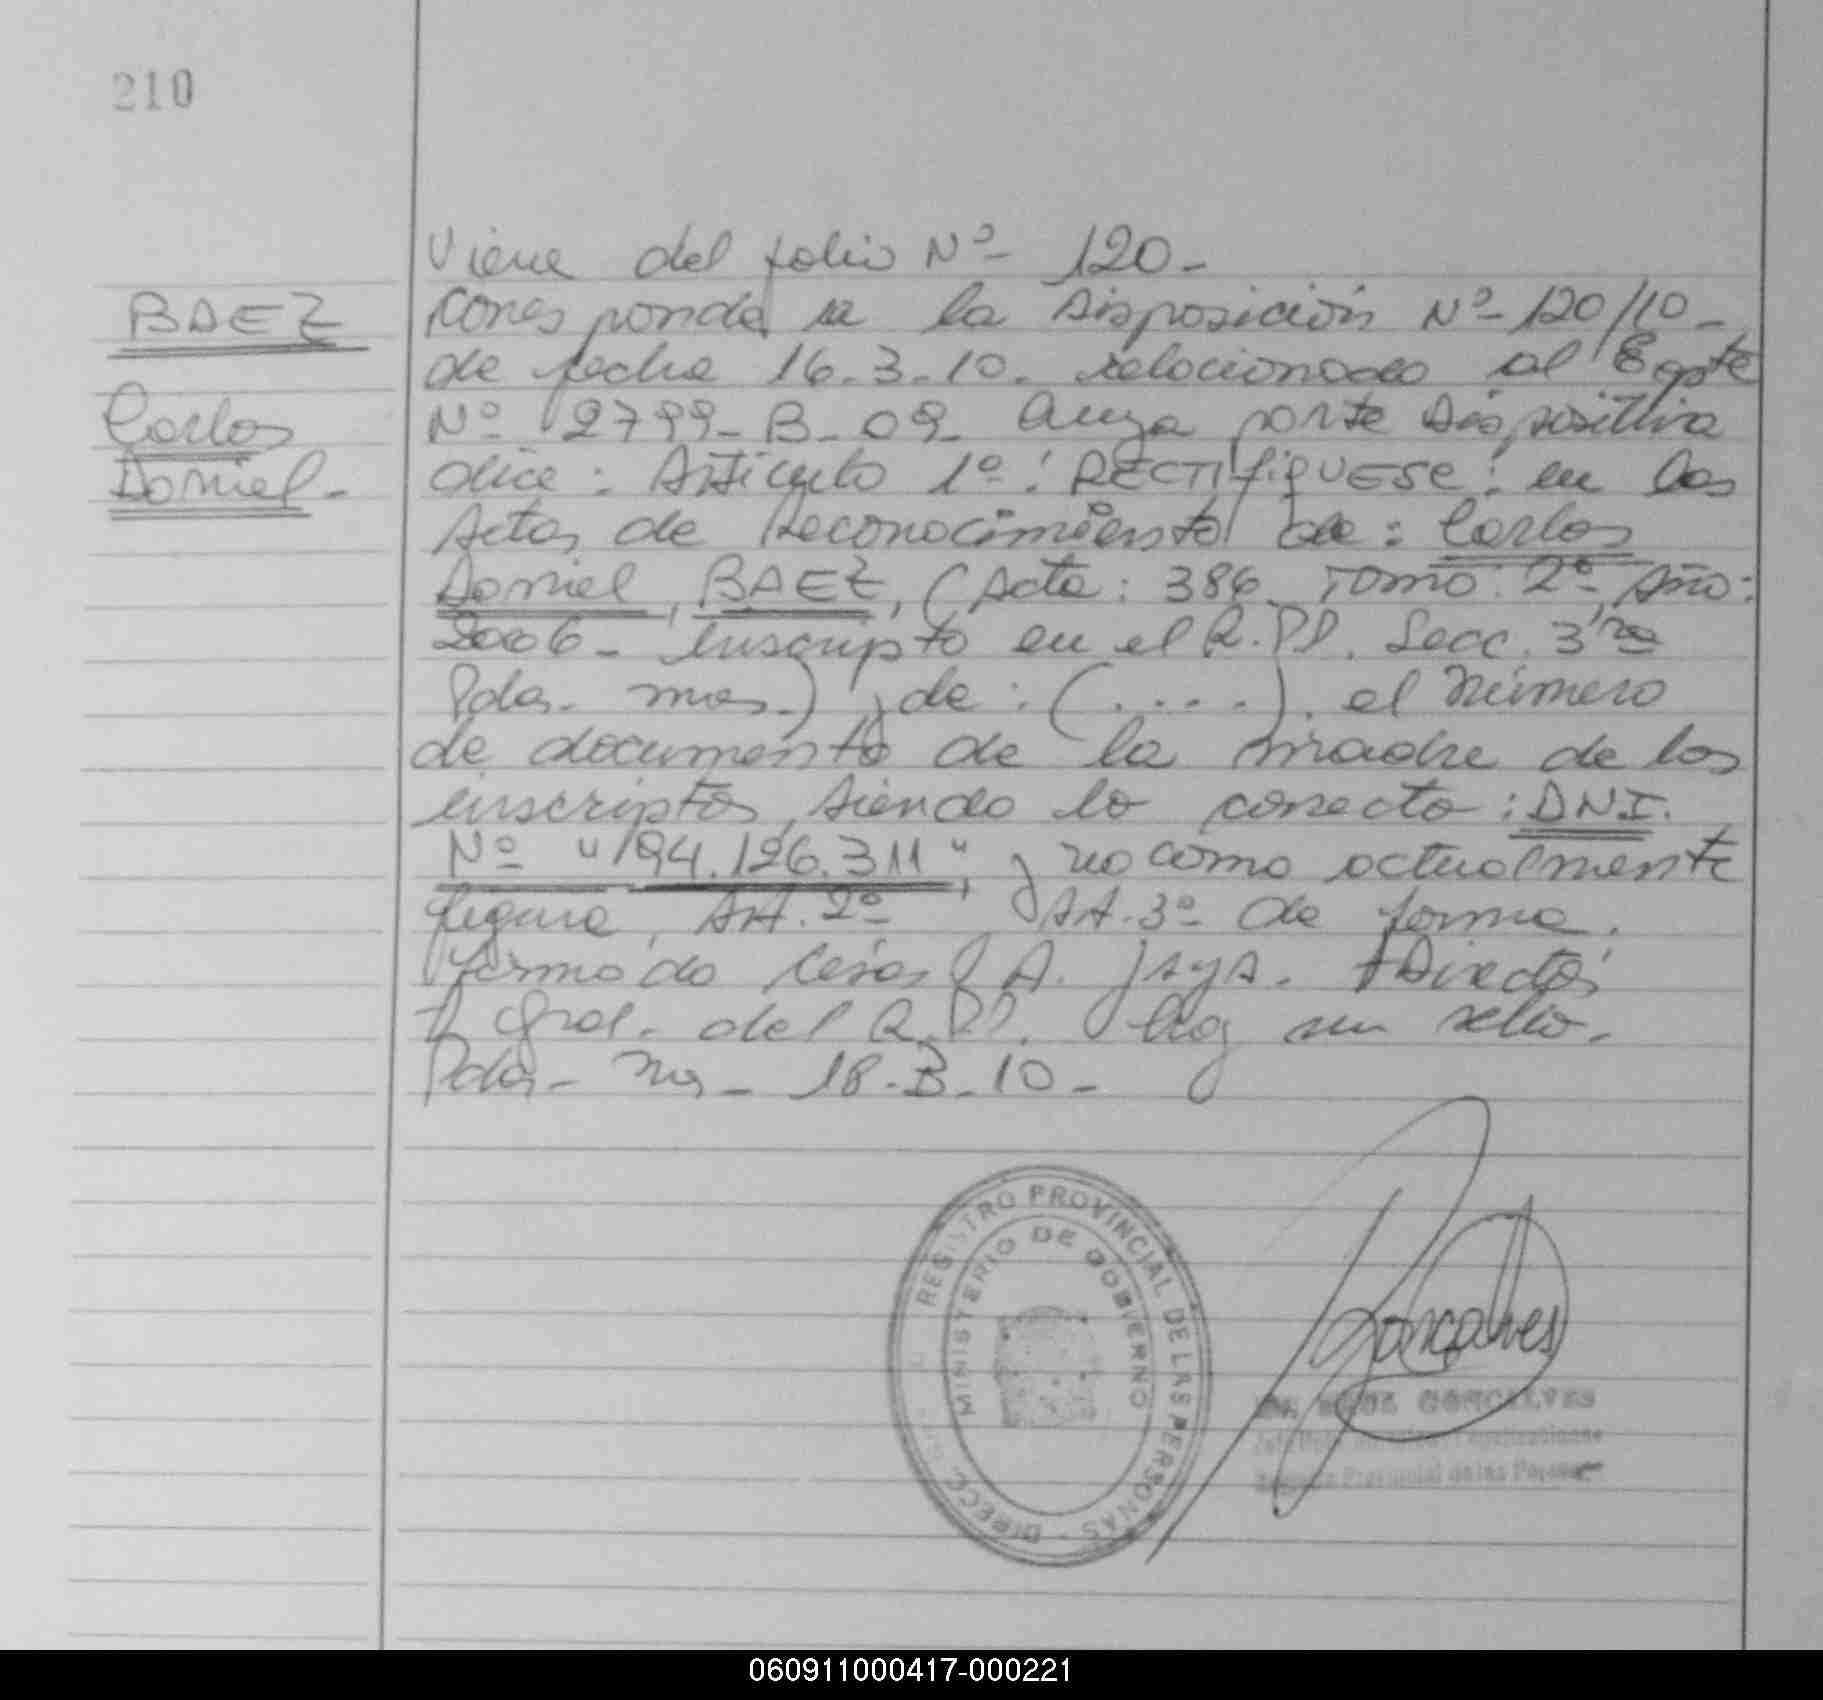 210
Viene del folio Nº 120-
BAEZ
Corresponde a la Disposición Nº 120/10-
de fecha 16-3-10- relacionado al Expte
Carlos
Nº 2799-B-09- Cuya parte dispositiva
Daniel-
dice: Artículo 1º: RECTIFIQUESE: en las
Actas de Reconocimiento de: Carlos
Daniel, BAEZ, (Acta: 386 Tomo: 2º Año:
2006- Inscripto en el R.P.P. Secc. 3ra
Pdas. mnes.) y de: (....). el número
de documento de la madre de los
inscriptos, siendo lo correcto: DNI.
Nº "94.126.311", y no como actualmente
figura, Art. 2º Art. 3º de forma.
Firmado César A. Director
Gral. del R.P.P. Hay un sello.
Pdas- Mnes- 18-3-10-
REGISTRO PROVINCIAL DE LAS PERSONAS - DIRECC. GRAL.
MINISTERIO DE GOBIERNO
Goncalves
GONCALVES
Registro Provincial de las Personas
060911000417-000221